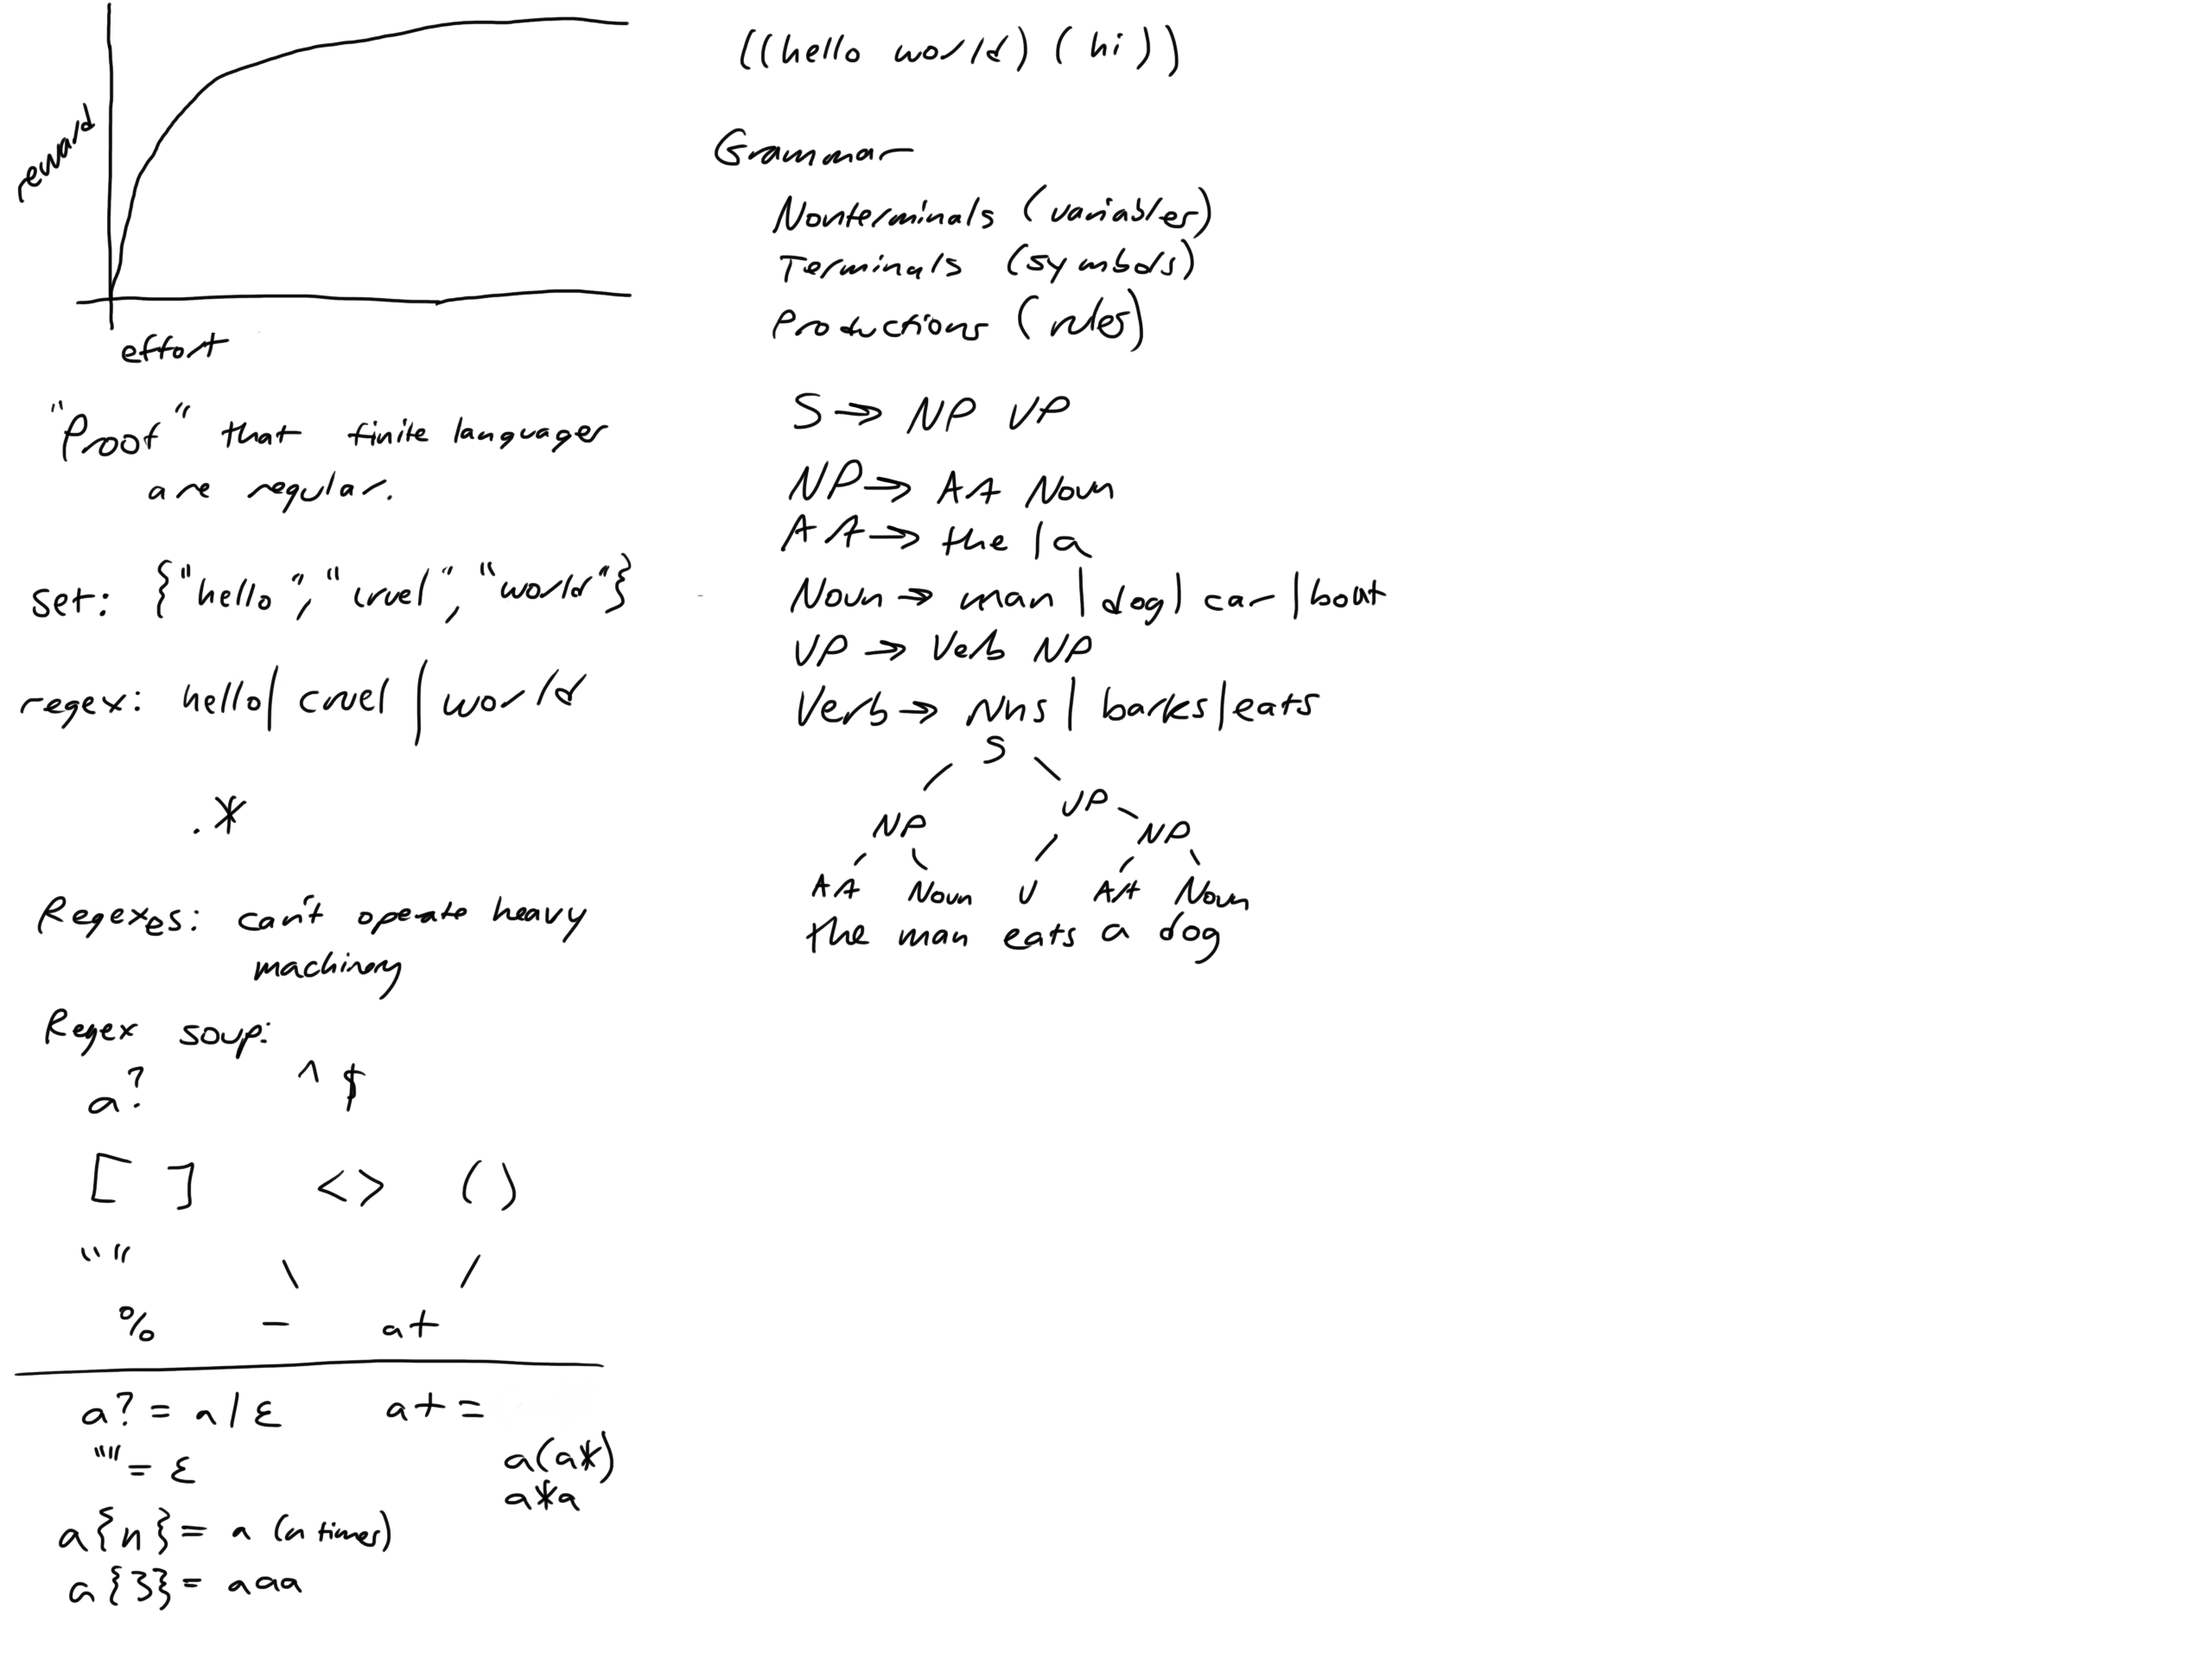 reward
effort
"Proof" that finite languages
are regular.
set: {"hello", "cruel", "world"}
regex: hello | cruel | world
.*
Regexes: can't operate heavy
machinery
Regex soup:
a? ^ $
[ ] < > ( )
" "  \ /
% - a+
a? = a | ε a+ =
"" = ε a(a*)
a*a
a{n} = a (n times)
a{3} = aaa
((hello world) (hi))
Grammar
Nonterminals (variables)
Terminals (symbols)
Productions (rules)
S → NP VP
NP → AA Noun
AA → the | a
Noun → man | dog | car | boat
VP → Verb NP
Verb → | barks | eats
S
NP VP NP
AA Noun V AA Noun
the man eats a dog